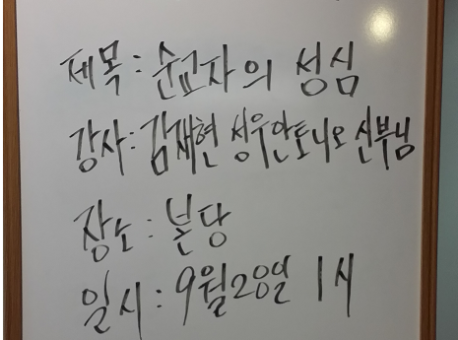 제목: 순교자의 성심
강사: 김재현 성우안토니오 신부님
장소: 본당
일시: 9월20일 1시